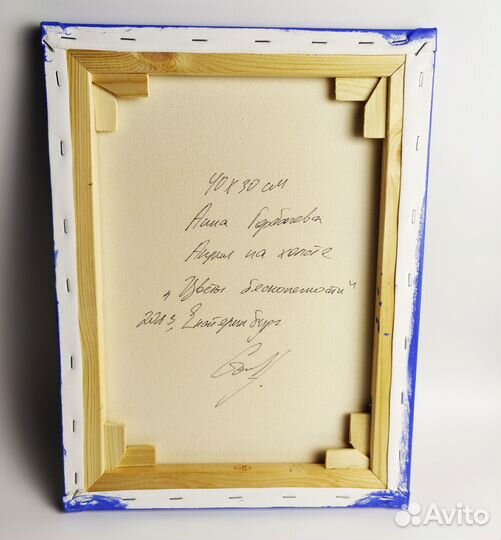 40 х 30 см
Анна Горбачева
Акрил на холсте
„Цветы бесконечности"
Екатеринбург
Avito